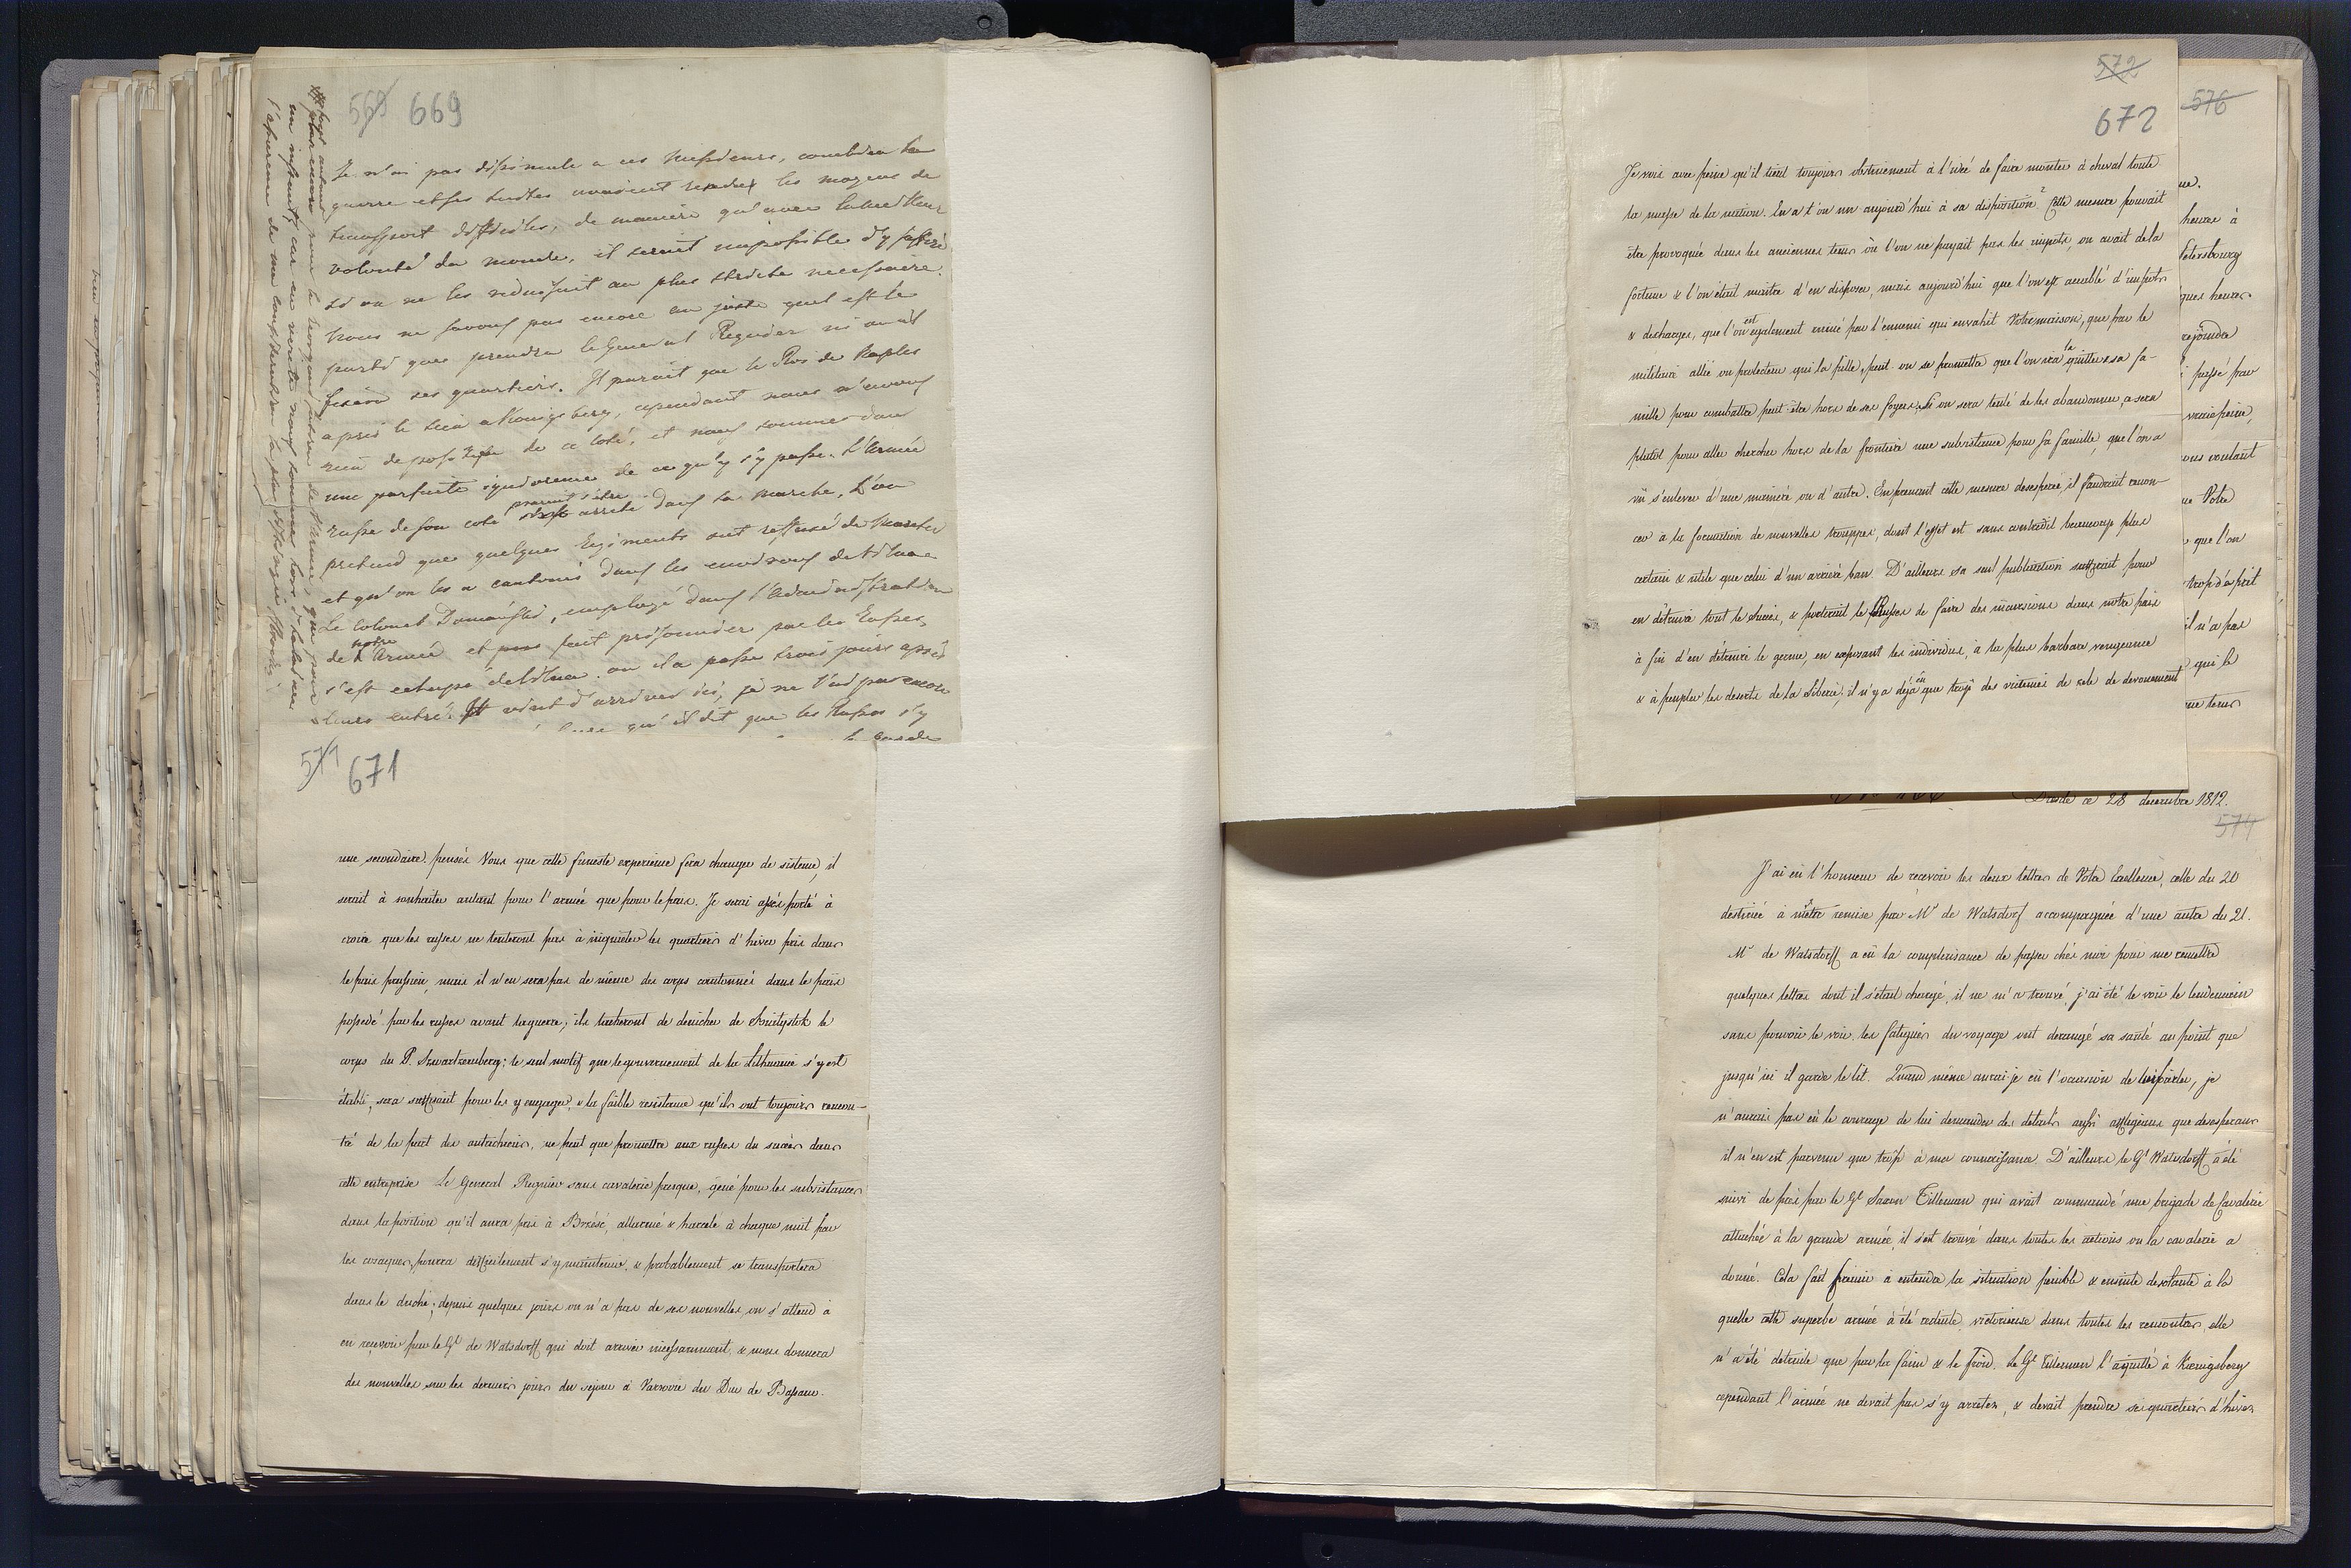 569 669
Je n'ai pas dissimulé a ces Messieurs, combien la
guerre et ses suites avaient rendu les moyens de
transport difficiles, de maniere qu'avec la meilleure
volonté du monde, il serait impossible d'y suffire
si on ne les reduisait au plus stricte necessaire.
Nous ne savons pas encore au juste quel est le
parti que prendra le General Regnier ni ou il
fixera ses quartiers. Il parait que le Roi de Naples
a pris le sien a Konigsberg, cependant nous n'avons
rien de positif de ce coté, et nous sommes dans
une parfaite ignorance de ce qu'y s'y passe. L'Armée
russe de son coté parait s'être arreté dans sa marche, L'on
pretend que quelques Regiments ont refusé de marcher
et qu'on les a cantonnés dans les environs de Vilna
Le Colonel employé dans l'Administration
de notre Armée et pris fait prisonnier par les Russes,
s'est echapé de Vilna, ou il a passé trois jours après
leurs entrée. Il vient d'arriver ici, je ne l'ai pas encore
qu'il dit que les Russes s'y
la Garde
571 671
une secondaire. pensés Vous que cette funeste experience fera changer de sisteme, il
serait à souhaiter autant pour l'armée que pour le pais. Je serai assés porté à
croire que les russes ne tenteront pas à inquiéter les quartiers d'hiver pris dans
le pais prussien, mais il n'en sera pas de même des corps cantonnés dans le pais
possedé par les russes avant la guerre; ils tacheront de denicher de Biallystok le
corps du P. Szwartzenberg; le seul motif que le gouvernement de la Lithuanie s'y est
établi, sera suffisant pour les y engager, & la faible resistance qu'ils ont toujours rencon-
tré de la part des autrichiens, ne peut que promettre aux russes du succès dans
cette entreprise Le General Regnier sans cavalerie presque, gené pour les subsistances
dans la position qu'il aura pris à Brzesc, allarmé & harcelé à chaque nuit par
les cosaques, pourra difficilement s'y maintenir, & probablement se transportera
dans le duché; depuis quelques jours on n'a pas de ses nouvelles, on s'attend à
en reçevoir par le Gl de Watzdorff, qui doit arriver incessamment, & nous donnera
des nouvelles sur les derniers jours du sejour à Varsovie du Duc de Bassano.
572
672
Je vois avec peine qu'il tient toujours obstinement à l'idée de faire monter à cheval toute
la masse de la nation. En a t'on un aujourd'hui à sa disposition? Cette mesure pouvait
être provoquée dans les anciennes tems où l'on ne payait pas les impots, on avait de la
fortune & l'on était maitre d'en disposer, mais aujourd'hui que l'on est accablé d'impots
& de charges, que l'on est egalement ruiné par l'ennemi qui envahit Votre maison, que par le
militaire allié ou protecteur qui la pille, peut-on se promettre que l'on ira la quitter & sa fa-
mille pour combattre peut-être hors de ses foyers. Si on sera tenté de les abandonner, ce sera
plutot pour aller chercher hors de la frontiere une subsistance pour sa famille, que l'on a
vü s'enlever d'une maniere ou d'autre. En prenant cette mesure desesperée, il faudrait renon-
cer à la formation de nouvelles trouppes, dont l'effet est sans contredit beaucoup plus
certain & utile que celui d'un arriere ban. D'ailleurs sa seul publication suffirait pour
en détruire tout le succès, & porterait le Russes de faire des incursions dans notre pais
à fin d'en détruire le germe, en exposant les individus, a la plus barbare vengeance
& à peupler les deserts de la Siberie; il n'y a déjà eü que trop des victimes de zele de devouement
576
heures à
Petersbourg
ques heures
rejoindre
passé par
vraie peine,
vous voulant
Votre
que l'on
trop d'esprit
il n'a pas
qui le
Dresde ce 28 decembre 1812.
574
J'ai eü l'honneur de recevoir les deux lettres de Votre Excellence, celle du 20
destinée à m'être remise par Mr de Watsdorf accompagnée d'une autre du 21.
Mr de Watsdorff a eü la complaisance de passer chés moi pour me remettre
quelques lettres dont il s'était chargé, il ne m'a trouvé, j'ai été le voir le lendemain
sans pouvoir le voir, les fatigues du voyage ont derangé sa santé au point que
jusqu'ici il garde le lit. Quand même aurai je eü l'occasion de lui parler, je
n'aurais pas eü le courage de lui demander des details aussi affligeans que desesperans
il n'en est parvenu que trop à ma connaissance. D'ailleurs le Gl Watsdorff a été
suivi de près par le Gl Saxon Tilleman qui avait commandé une brigade de Cavalerie
attachée à la grande armée, il s'est trouvé dans toutes les actions ou la cavalerie a
donné. Cela fait fremir à entendre la situation penible & ensuite desolante à la
quelle cette superbe armée à été reduite, victorieuse dans toutes les rencontres, elle
n'a été detruite que par la faim & le froid. Le Gl Tilleman l'a quitté à Kœnigsberg
cependant l'armée ne devait pas s'y arreter, & devait prendre ses quartiers d'hiver